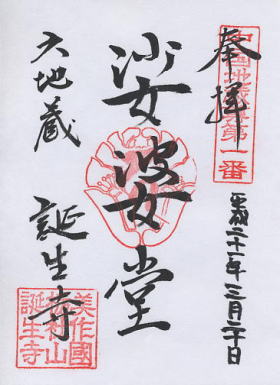 中国地蔵尊第一番
奉拝
平成二十一年三月二十日
娑婆堂
六地蔵
誕生寺
美作國
栃社山
誕生寺